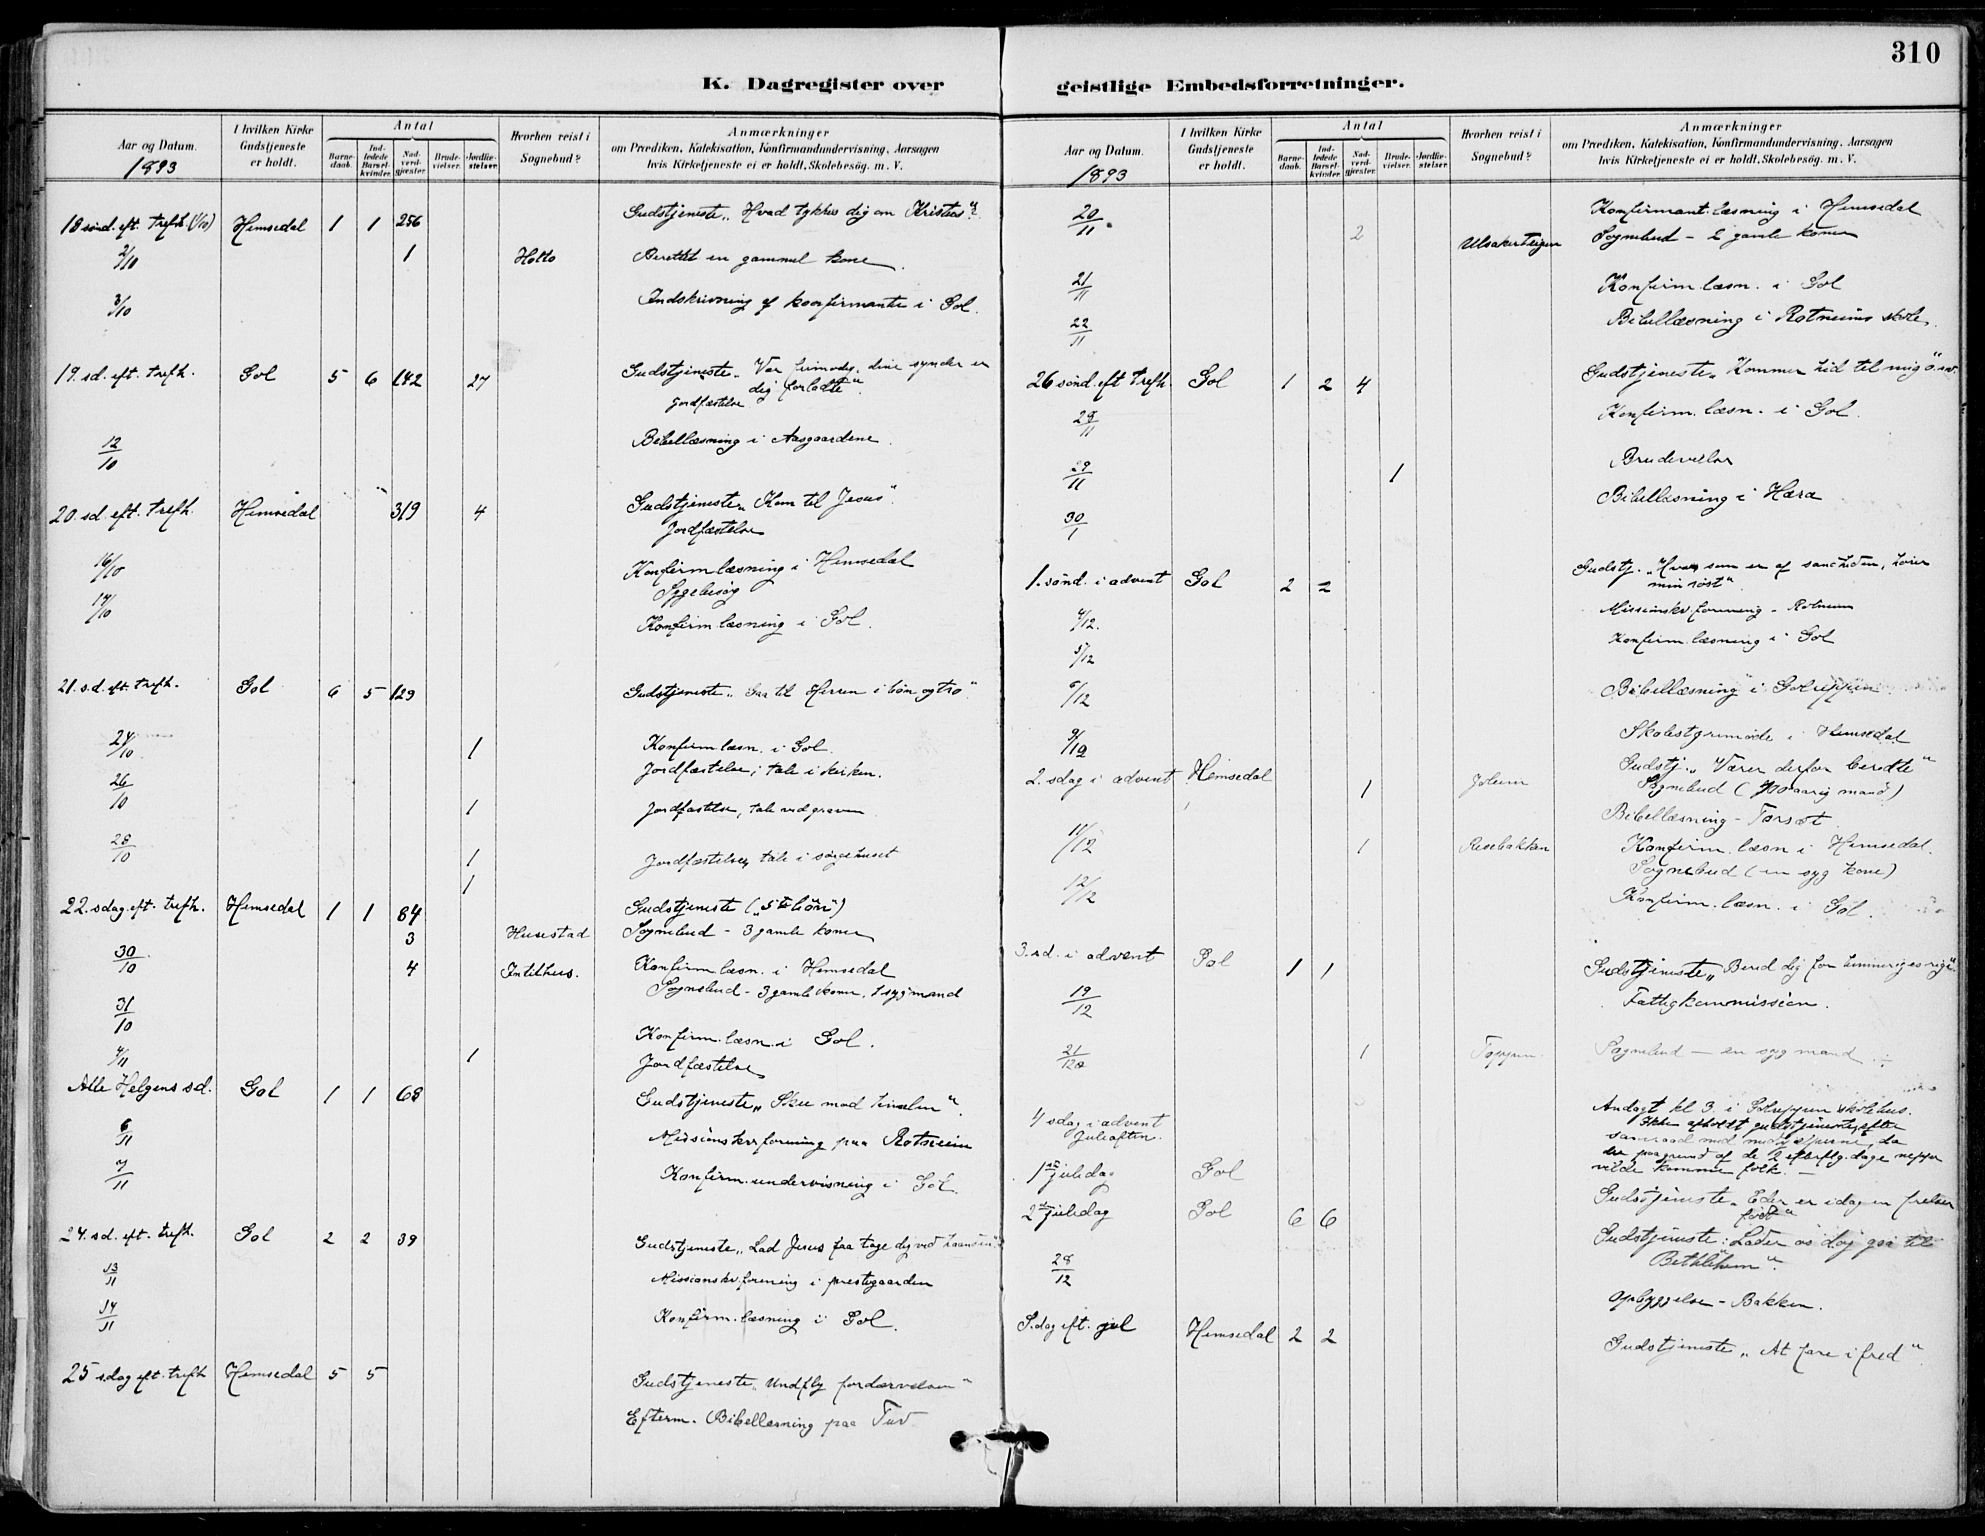 310
K. Dagregister over
Aar og Datum.
1893
I hvilken Kirke Gudstjeneste er holdt.
Antal
Barnedaab.
Indledede Barselkvinder.
Nadverdgjester.
Brudevielser.
Jordfæstelser.
Hvorhen reist i Sognebud?
Anmærkninger
om Prædiken, Katekisation, Konfirmandundervisning, Aarsagen
hvis Kirketjeneste ei er holdt, Skolebesög. m. V.
18 sönd. eft. trefh. (1/10) Hemsedal 1 1 256 Gudstjeneste „Hvad tykkes dig om Kristus"?
2/10 1 Holto Berettet en gammel kone.
3/10 Indskrivning af konfirmanter i Gol.
19. sd. eft. trefh. Gol 5 6 142 27 Gudstjeneste „Vær frimodig, dine synder er
dig forladte"
Jordfæstelse
12/10 Bibellæsning i Aasgaardene.
20. sd. eft. trefh. Hemsedal 319 4 Gudstjeneste „Kom til Jesus"
Jordfæstelse
16/10 Konfirm læsning i Hemsedal
Sygebesög
17/10 Konfirm. læsning i Gol.
21. s.d. eft. trefh. Gol 6 5 129 Gudstjeneste „Gaa til Herren i bön og tro"
24/10 Konfirm læsn. i Gol.
1 Jordfæstelse; tale i kirken.
26/10 1 Jordfæstelse, tale ved graven
28/10 1 Jordfæstelse, tale i sörgehuset
1
22. sdag. eft. trefh. Hemsedal 1 1 84 Gudstjeneste („5te bön")
3 Husestad Sognebud - 3 gamle koner
30/10 4 Intilhus. Konfirm læsn. i Hemsedal
Sognebud - 3 gamle koner, 1 syg mand
31/10 Konfirm. læsn. i Gol.
4/11 1 Jordfæstelse
Alle Helgens sd. Gol 1 1 68 Gudstjeneste „Skue mod himlen".
6/11 Missionskv.forening paa Rotneim
7/11 Konfirm. undervisning i Gol.
24. sd. eft. trefh. Gol 2 2 39 Gudstjeneste „Lad Jesus faa tage dig ved haanden"
13/11 Missionskv.forening i prestegaarden
14/11 Konfirm. læsning i Gol.
25 sdag eft. trefh Hemsedal 5 5 Gudstjeneste „Undfly fordærvelsen"
Efterm. Bibellæsning paa Tuv
geistlige Embedsforretninger.
Aar og Datum.
1893
I hvilken Kirke Gudstjeneste er holdt.
Antal
Barnedaab.
Indledede Barselkvinder.
Nadverdgjester.
Brudevielser.
Jordfæstelser.
Hvorhen reist i Sognebud?
Anmærkninger
om Prædiken, Katekisation, Konfirmandundervisning, Aarsagen
hvis Kirketjeneste ei er holdt, Skolebesög. m. V.
20/11 Konfirmant.læsning i Hemsedal
2 Ulsakerteigen Sognebud - 2 gamle koner
21/11 Konfirm. læsn. i Gol
22/11 Bibellæsning i Rotneims skole.
26 sönd. eft trefh. Gol 1 2 4 Gudstjeneste „Kommer hid til mig" o.s.v.
28/11 Konfirm. læsn. i Gol.
29/11 1 Brudevielse
30/1 Bibellæsning i Hæra
1. sönd. i advent Gol 2 2 Gudstj. „Hver som er af sandheden, hörer
min röst"
4/12. Missionskv.forening - Rotneim
5/12 Konfirm. læsning i Gol
6/12 Bibellæsning i Golreppen
9/12 Skolestyremöde i Hemsedal
2. sdag i advent Hemsedal Gudstj. „Værer derfor beredte"
1 Sognebud ( aarig mand)
Bibellæsning -
11/12 1 Konfirm. læsn i Hemsedal.
Sognebud (en syg kone)
12/12 Konfirm. læsn. i Gol.
3. sd. i advent Gol 1 1 Gudstjeneste „Bered dig for himmeriges rige".
19/12 Fattigkommission.
21/12 1 Sognebud - en syg mand
4 sdag i advent
Juleaften. Andagt kl 3. i Golreppen skolehus.
Ikke afholdt gudstjeneste, efter
samraad med medhjelperne, da
der paa grund af de 2 efterflg. dage neppe
vilde komme folk. —
1ste juledag Gol Gudstjeneste „Eder er idag en frelser
födt"
2den juledag Gol 6 6 Gudstjeneste: „Lader os dog gaa til
Bethlehem".
28/12 Opbyggelse - Bakken.
S.dag eft. jul Hemsedal 2 2 Gudstjeneste „At fare i fred"